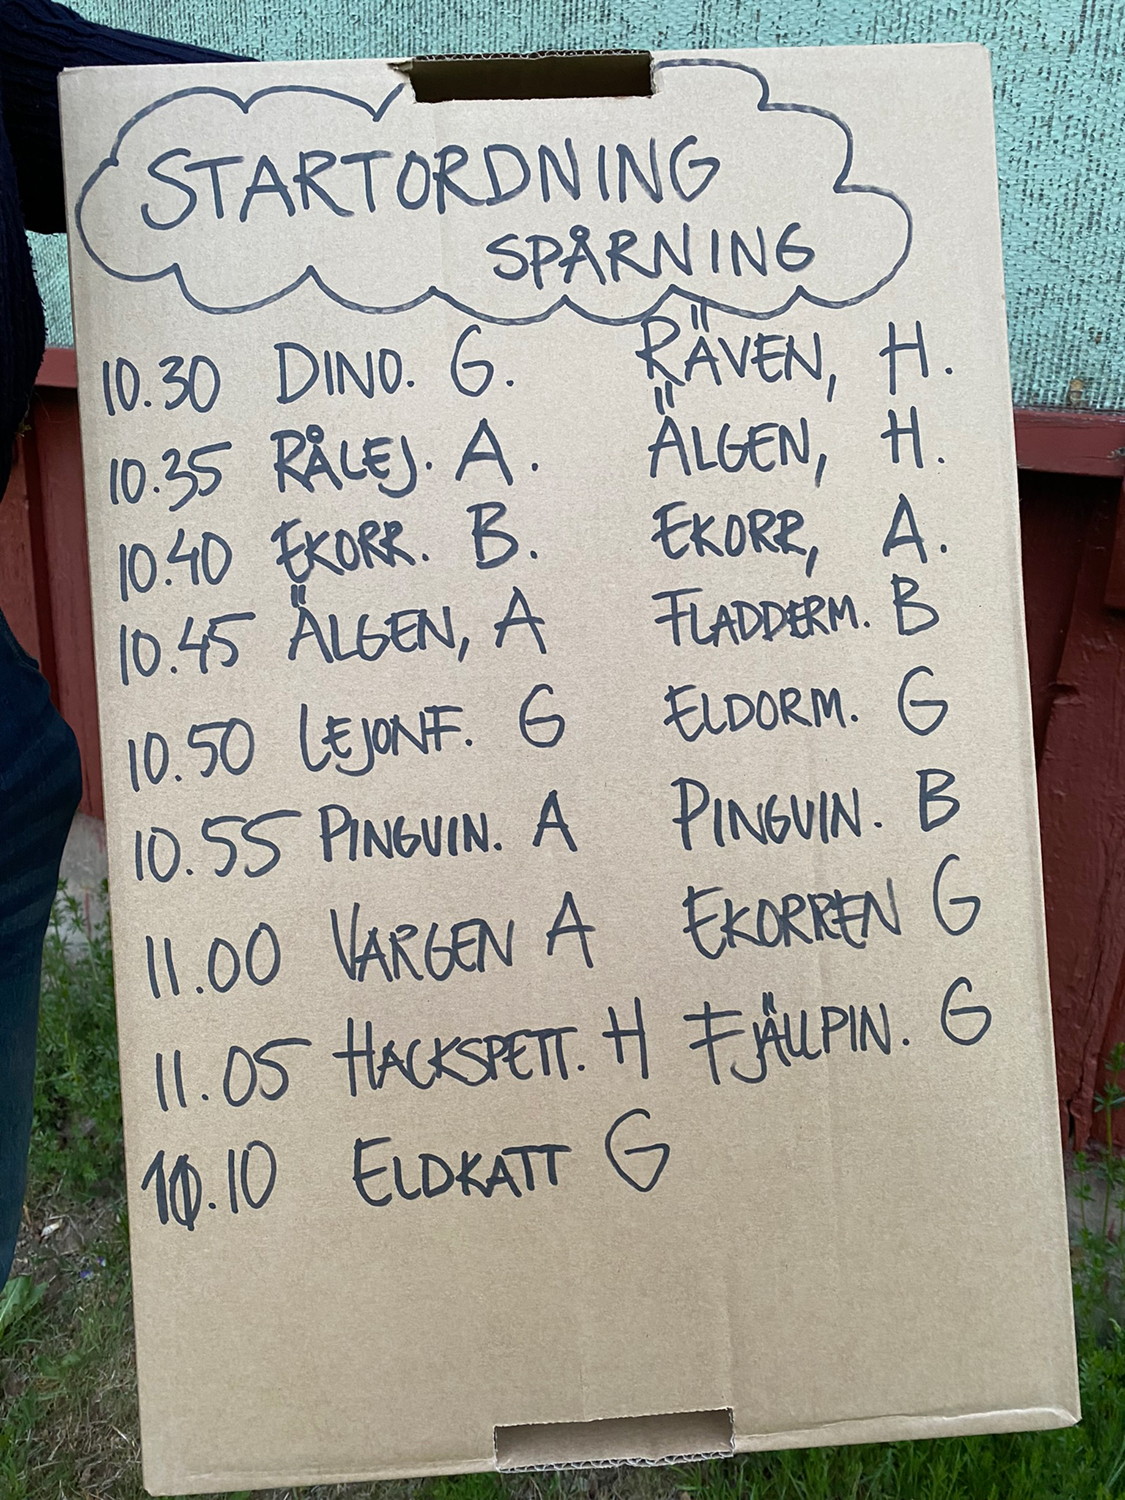 STARTORDNING
SPÅRNING
10.30 DINO. G. RÄVEN, H.
10.35 RÅLEJ. A. ÄLGEN, H.
10.40 EKORR. B. EKORR, A.
10.45 ÄLGEN, A FLADDERM. B
10.50 LEJONF. G ELDORM. G
10.55 PINGVIN. A PINGVIN. B
11.00 VARGEN A EKORREN G
11.05 HACKSPETT. H FJÄLLPIN. G
11.10 ELDKATT G